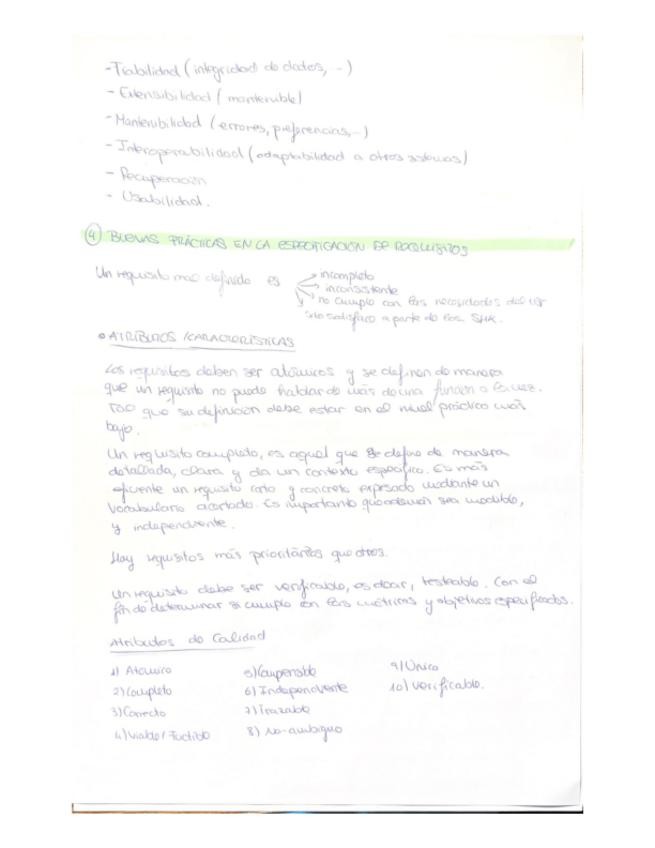 - Fiabilidad (integridad de datos, ...)
- Extensibilidad (mantenible)
- Mantenibilidad (errores, preferencias, ...)
- Interoperabilidad (adaptabilidad a otros sistemas)
- Recuperación
- Usabilidad.
④ BUENAS PRÁCTICAS EN LA ESPECIFICACIÓN DE REQUISITOS
Un requisito mal definido es → incompleto
→ inconsistente
→ no cumple con las necesidades del
satisface a parte de los SHK.
• ATRIBUTOS / CARACTERÍSTICAS
Los requisitos deben ser atómicos y se definen de manera
que un requisito no puede hablar de más de una función a la vez.
que su definición debe estar en el nivel práctico más
bajo.
Un requisito completo, es aquel que se define de manera
detallada, clara y da un contexto específico. Es más
un requisito corto y concreto expresado mediante un
vocabulario acotado. Es importante que sea medible,
y independiente.
Hay requisitos más prioritarios que otros.
Un requisito debe ser verificable, es decir, testeable. Con el
fin de determinar si cumple con las métricas y objetivos especificados.
Atributos de Calidad
1) Atómico
2) Completo
3) Correcto
4) Viable / Factible
5)
6) Independiente
7) Trazable
8) No-ambiguo
9) Único
10) Verificable.